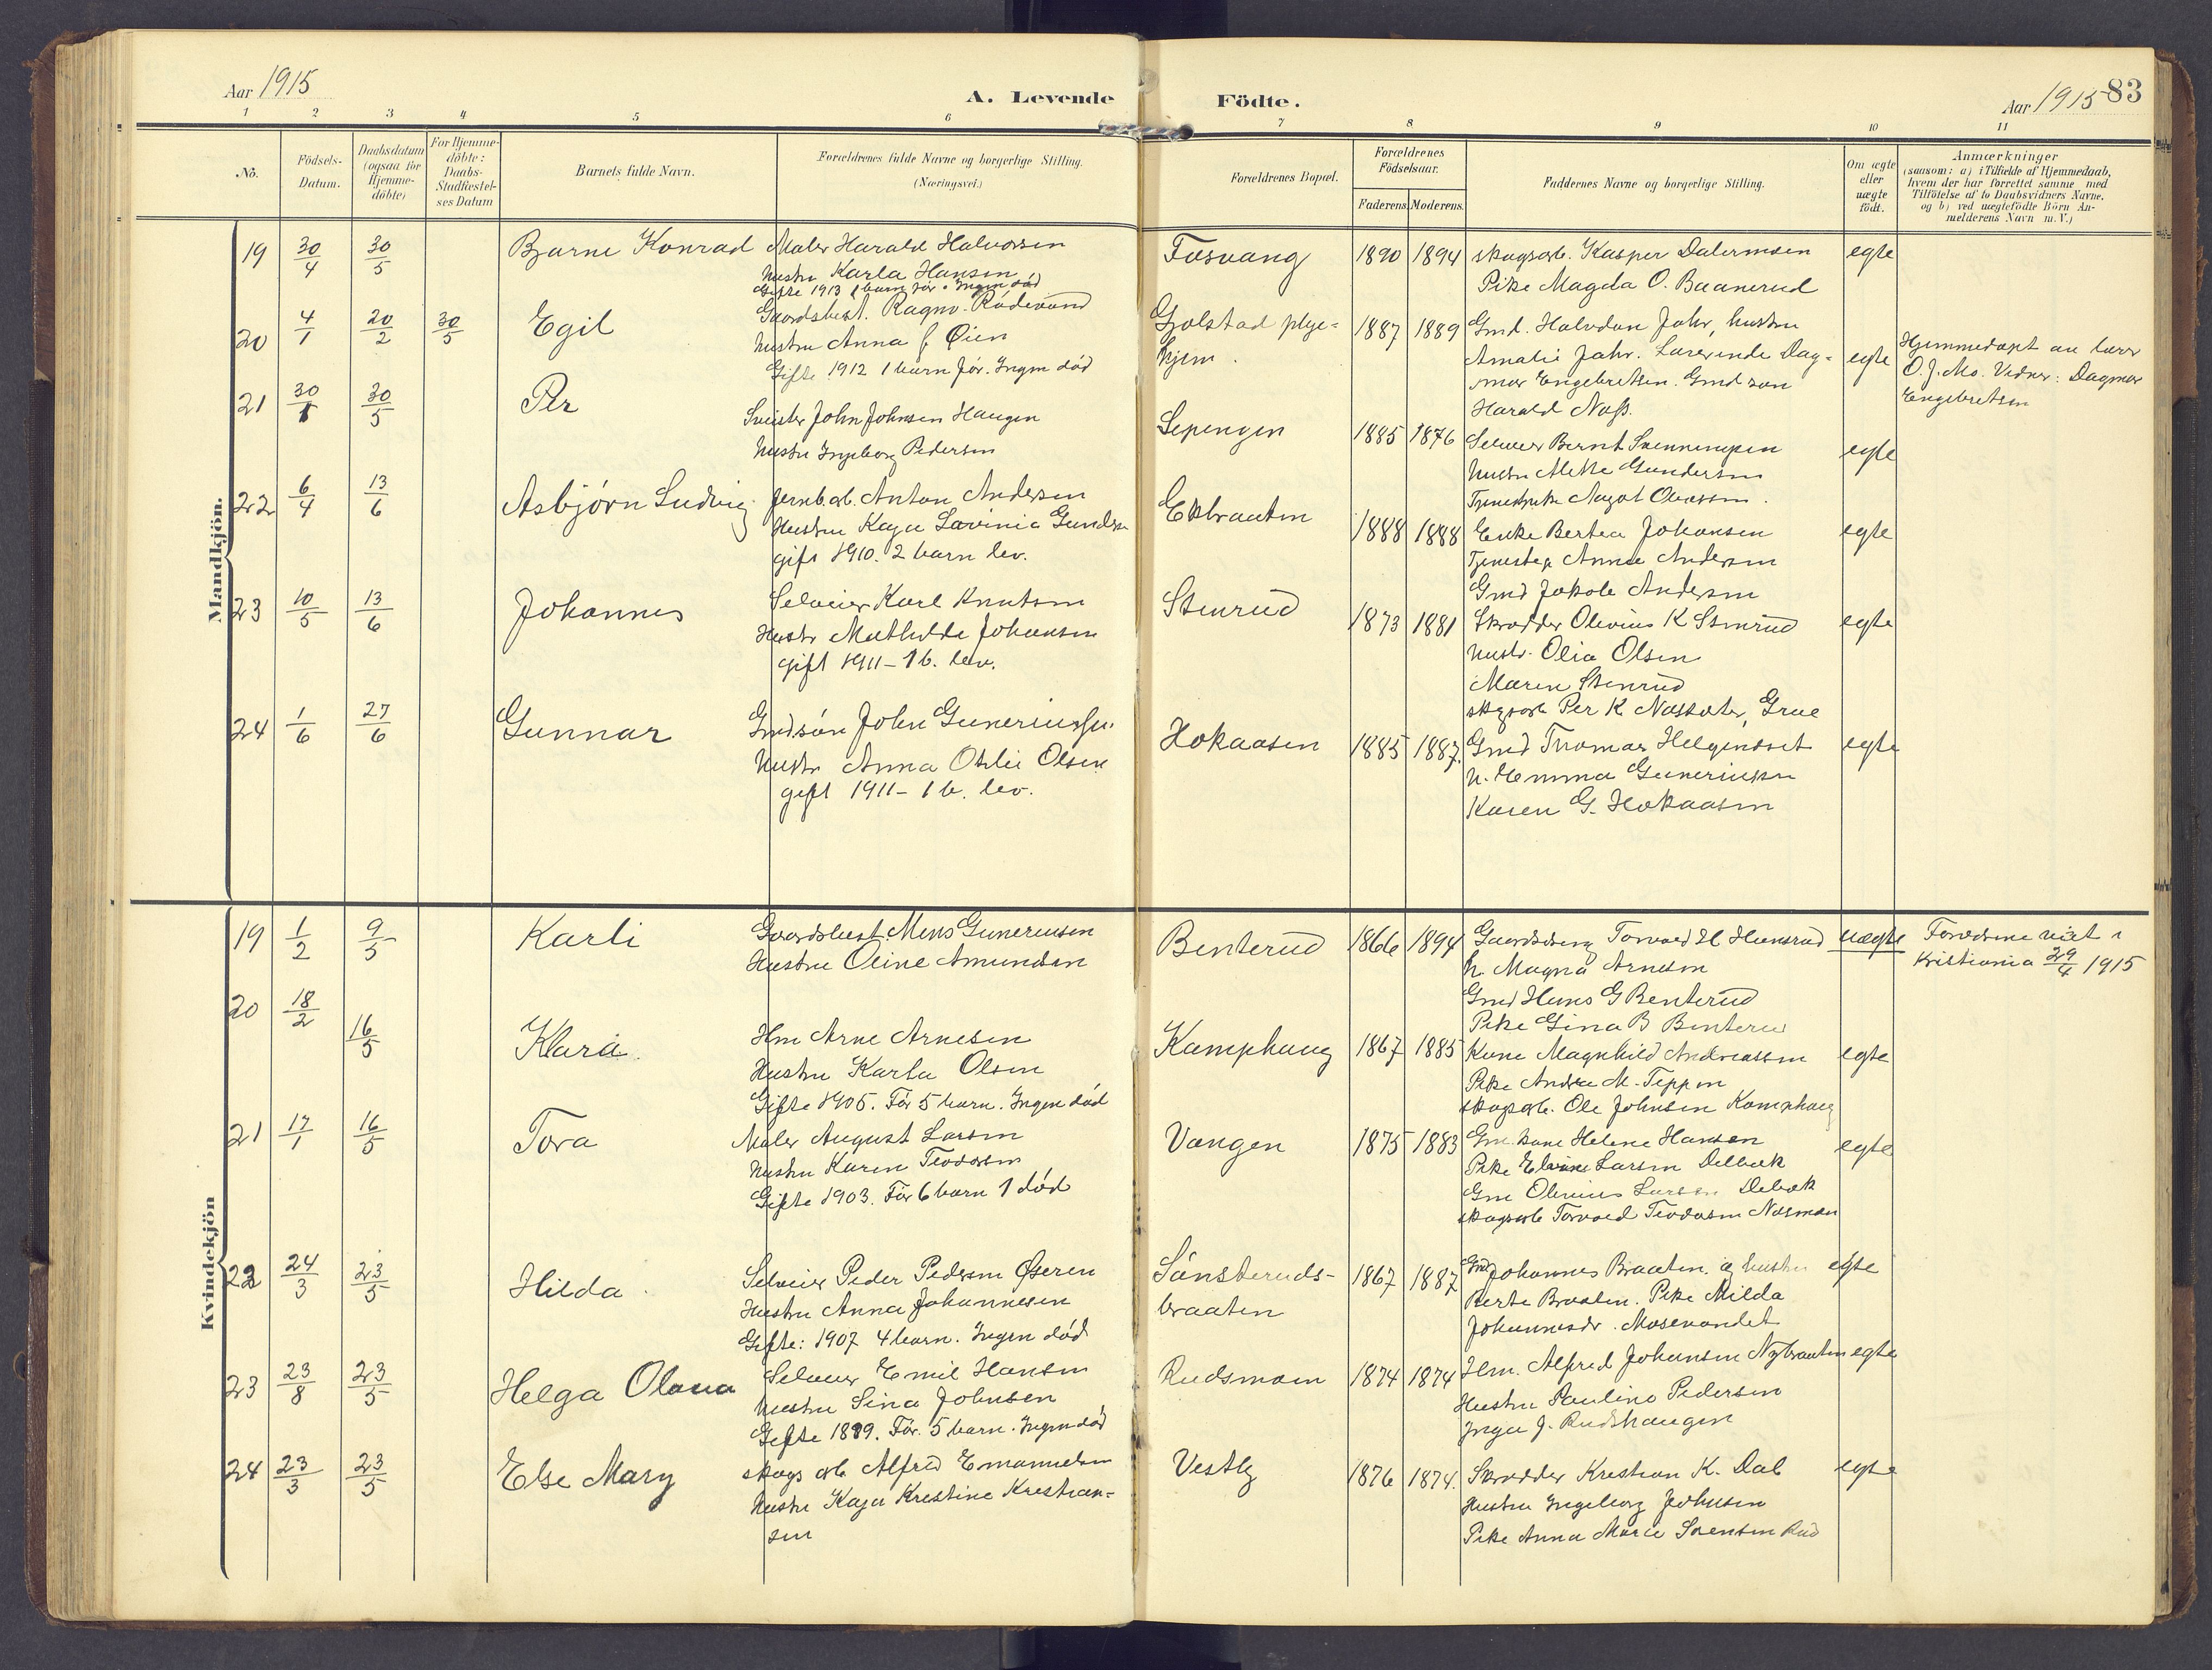 Aar 1915
A. Levende Födte.
Aar 1915 83
1 2 3 4 5 6 7 8 9 10 11
No.
Födsels-Datum.
Daabsdatum (ogsaa for Hjemme-döbte)
For Hjemme-döbte: Daabs-Stadfæstel-ses Datum
Barnets fulde Navn.
Forældrenes fulde Navne og borgerlige Stilling.
(Næringsvei.)
Forældrenes Bopæl.
Forældrenes Födselsaar.
Faderens. Moderens.
Faddernes Navne og borgerlige Stilling.
Om ægte eller uægte födt.
Anmærkninger
(saasom: a) i Tilfælde af Hjemmedaab,
hvem der har forrettet samme med
Tilföielse af to Daabsvidners Navne.
og b) ved uægtefödte Börn An-
melderens Navn m. V.)
Mandkjön.
19 30/4 30/5 Bjarne Konrad
Maler Harald Halvorsen
hustru Karla Hansen
Gifte 1913 1 barn før. Ingen død
1890 1894
skogsarb. Kasper Dalermoen
Pike Magda O. Baanerud
egte
20 4/1 20/2 30/5 Egil
Gaardsbest. Ragnv. Rødevand
hustru Anna Øien
Gifte 1912 1 barn før. Ingen død
Gjølstad pleje-
hjem.
1887 1889
Gmd. Halvdan Jahr, hustru
Amalie Jahr. Lærerinde Dag-
mar Engebretsen. Gmd søn
Harald Næss.
egte
Hjemmedøpt av lærer
O. J. Mo. Vidner: Dagmar
Engebretsen
21 30/1 30/5 Per
Sveiser John Johnsen Haugen
hustru Ingeborg Pedersen
Lepengen
1885 1876
Selveier Bernt Svenneengen
hustru Mette Gundersen
Tjenestpike Nagot Olavssen.
egte
22 6/4 13/6 Asbjørn Ludvig
Jernb.arb. Anton Andersen
Hustru Kaja Lovinia Gunders
gift 1910. 2 barn lev.
Ekbraaten
1888 1888
Enke Bertea Johansen
Tjenestep. Anna Andersen
Gmd Jakob Andersen
egte
23 10/5 13/6 Johannes
Selveier Karl Knutsen
Hustr Mathilda Johansen
gift 1911 – 1 b. lev.
Stenrud
1873 1881
Skredder Olevius K Stenrud
hustr. Olia Olsen
Maren Stenrud
skogsarb Per K Næssæter, Grue
egte
24 1/6 27/6 Gunnar
Gmdsøn John Guneriussen
hustr Anna Otilie Olsen
gift 1911 – 1 b. lev.
Hokaasen
1885 1887.
Gmd Thomas Helgeneset
h. Hemma Guneriussen
Karen G. Hokaasen
egte
Kvindekjön
19 1/2 9/5 Karli
Gaardsbest. Mons Guneriussen
Hustru Oline Amundsen
Benterud
1866 1894
Torvald H Hansrud
h. Magna Arnesen
Gmd Hans G Benterud
Pike Gina B Benterud
uægte
Forældrene viet i
Kristiania 29/4 1915
20 18/2 16/5 Klara.
Hm Arne Arnesen
Hustru Karla Olsen
Gifte 1905. Før 5 barn. Ingen død
Kamphaug
1867 1885
Kone Magnhild Andreassen
Pike Andrea M. Teppen
skogsarb. Ole Johnsen Kamphaug
egte
21 17/1 16/5 Tora
Maler August Larsen
hustru Karen Teodorsen
Gifte 1903. Før 6 barn 1 død
Vangen
1875 1883
Gm. kone Helene Hansen
Pike Elvine Larsen Delbæk
Gm Olenius Larsen Delbæk
skogsarb Torvald Teodorsen Næsmoen
egte
22 24/3 23/5 Hilda.
Selveier Peder Pedersen Øieren
Hustru Anna Johannesen
Gifte: 1907 4 barn. Ingen død
Sønsteruds-
braaten
1867 1887
Gmd Johannes Braaten. og hustru
Berte Braaten. Pike Milda
Johannesdr. Mosevandet
egte
23 23/8 23/5 Helga Olava
Selveier Emil Hansen
hustru Lina Johnsen
Gifte 1899. Før. 5 barn. Ingen død
Rudsmoen
1874 1874
Hm. Alfred Johansen Nybraaten
Hustru Pauline Pedersen
Inga J. Rudshaugen
egte
24 23/3 23/5 Else Mary
skogs arb Alfred Emanuelsen
hustru Kaja Kristine Kristian-
sen
Vestby
1876 1874.
Skredder Krestian K. Dal
Hustru Ingeborg Johnsen
Pike Anna Marie Svensen Rud
egte